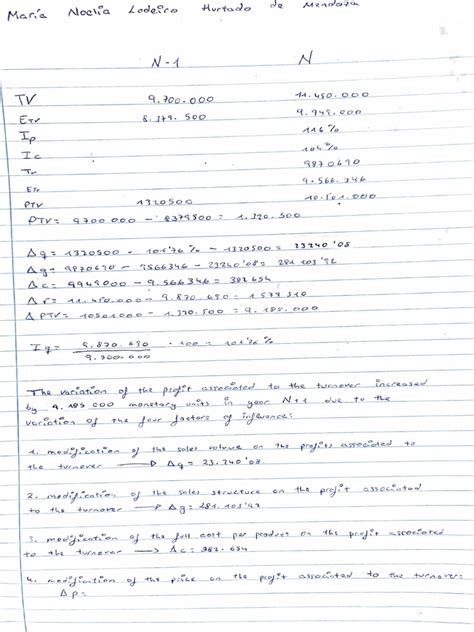 María Noelia Lodeiro Hurtado de Mendoza
N-1 N
TV 9.700.000 11.450.000
ETV 8.379.500 9.949.000
Ip 116%
Ic 104%
Tr 9870690
Etr 9.566.346
PTV 1320500 10.501.000
PTV = 9700000 - 8379500 = 1.320.500
Δq = 1320500 - 101'76% - 1320500 = 23240'08
Δg = 9870690 - 9566346 - 23240'08 = 281103'92
Δc = 9949000 - 9.566346 = 382654
Δr = 11.450.000 - 9.870.690 = 1579310
Δ PTV = 10501000 - 1.320.500 = 9.185.000
Iq = 9.870.690 · 100 = 101'76%
9.700.000
The variation of the profit associated to the turnover increased
by 9.185.000 monetary units in year N+1 due to the
variation of the four factors of influence:
1. modification of the sales volume on the profits associated to
the turnover → Δq = 23.240'08
2. modification of the sales structure on the profit associated
to the turnover → Δg = 281.103'92
3. modification of the full cost per product on the profit associated
to the turnover → Δc = 382.654
4. modification of the price on the profit associated to the turnover:
Δp =